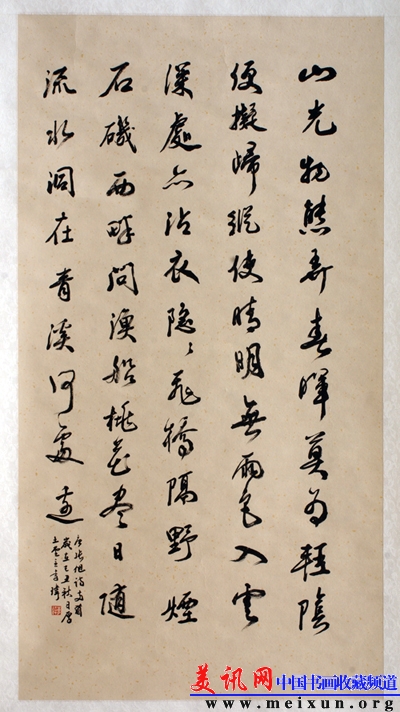 山光物態弄春暉莫为輕陰
便擬歸縱使晴明無雨色入云
深處亦沾衣隱々飛橋隔野煙
石磯西畔問漁船桃花尽日隨
流水洞在青溪何處邊
唐张旭詩两首
歲在己丑秋日書
美讯网中国书画收藏频道
www.meixun.org